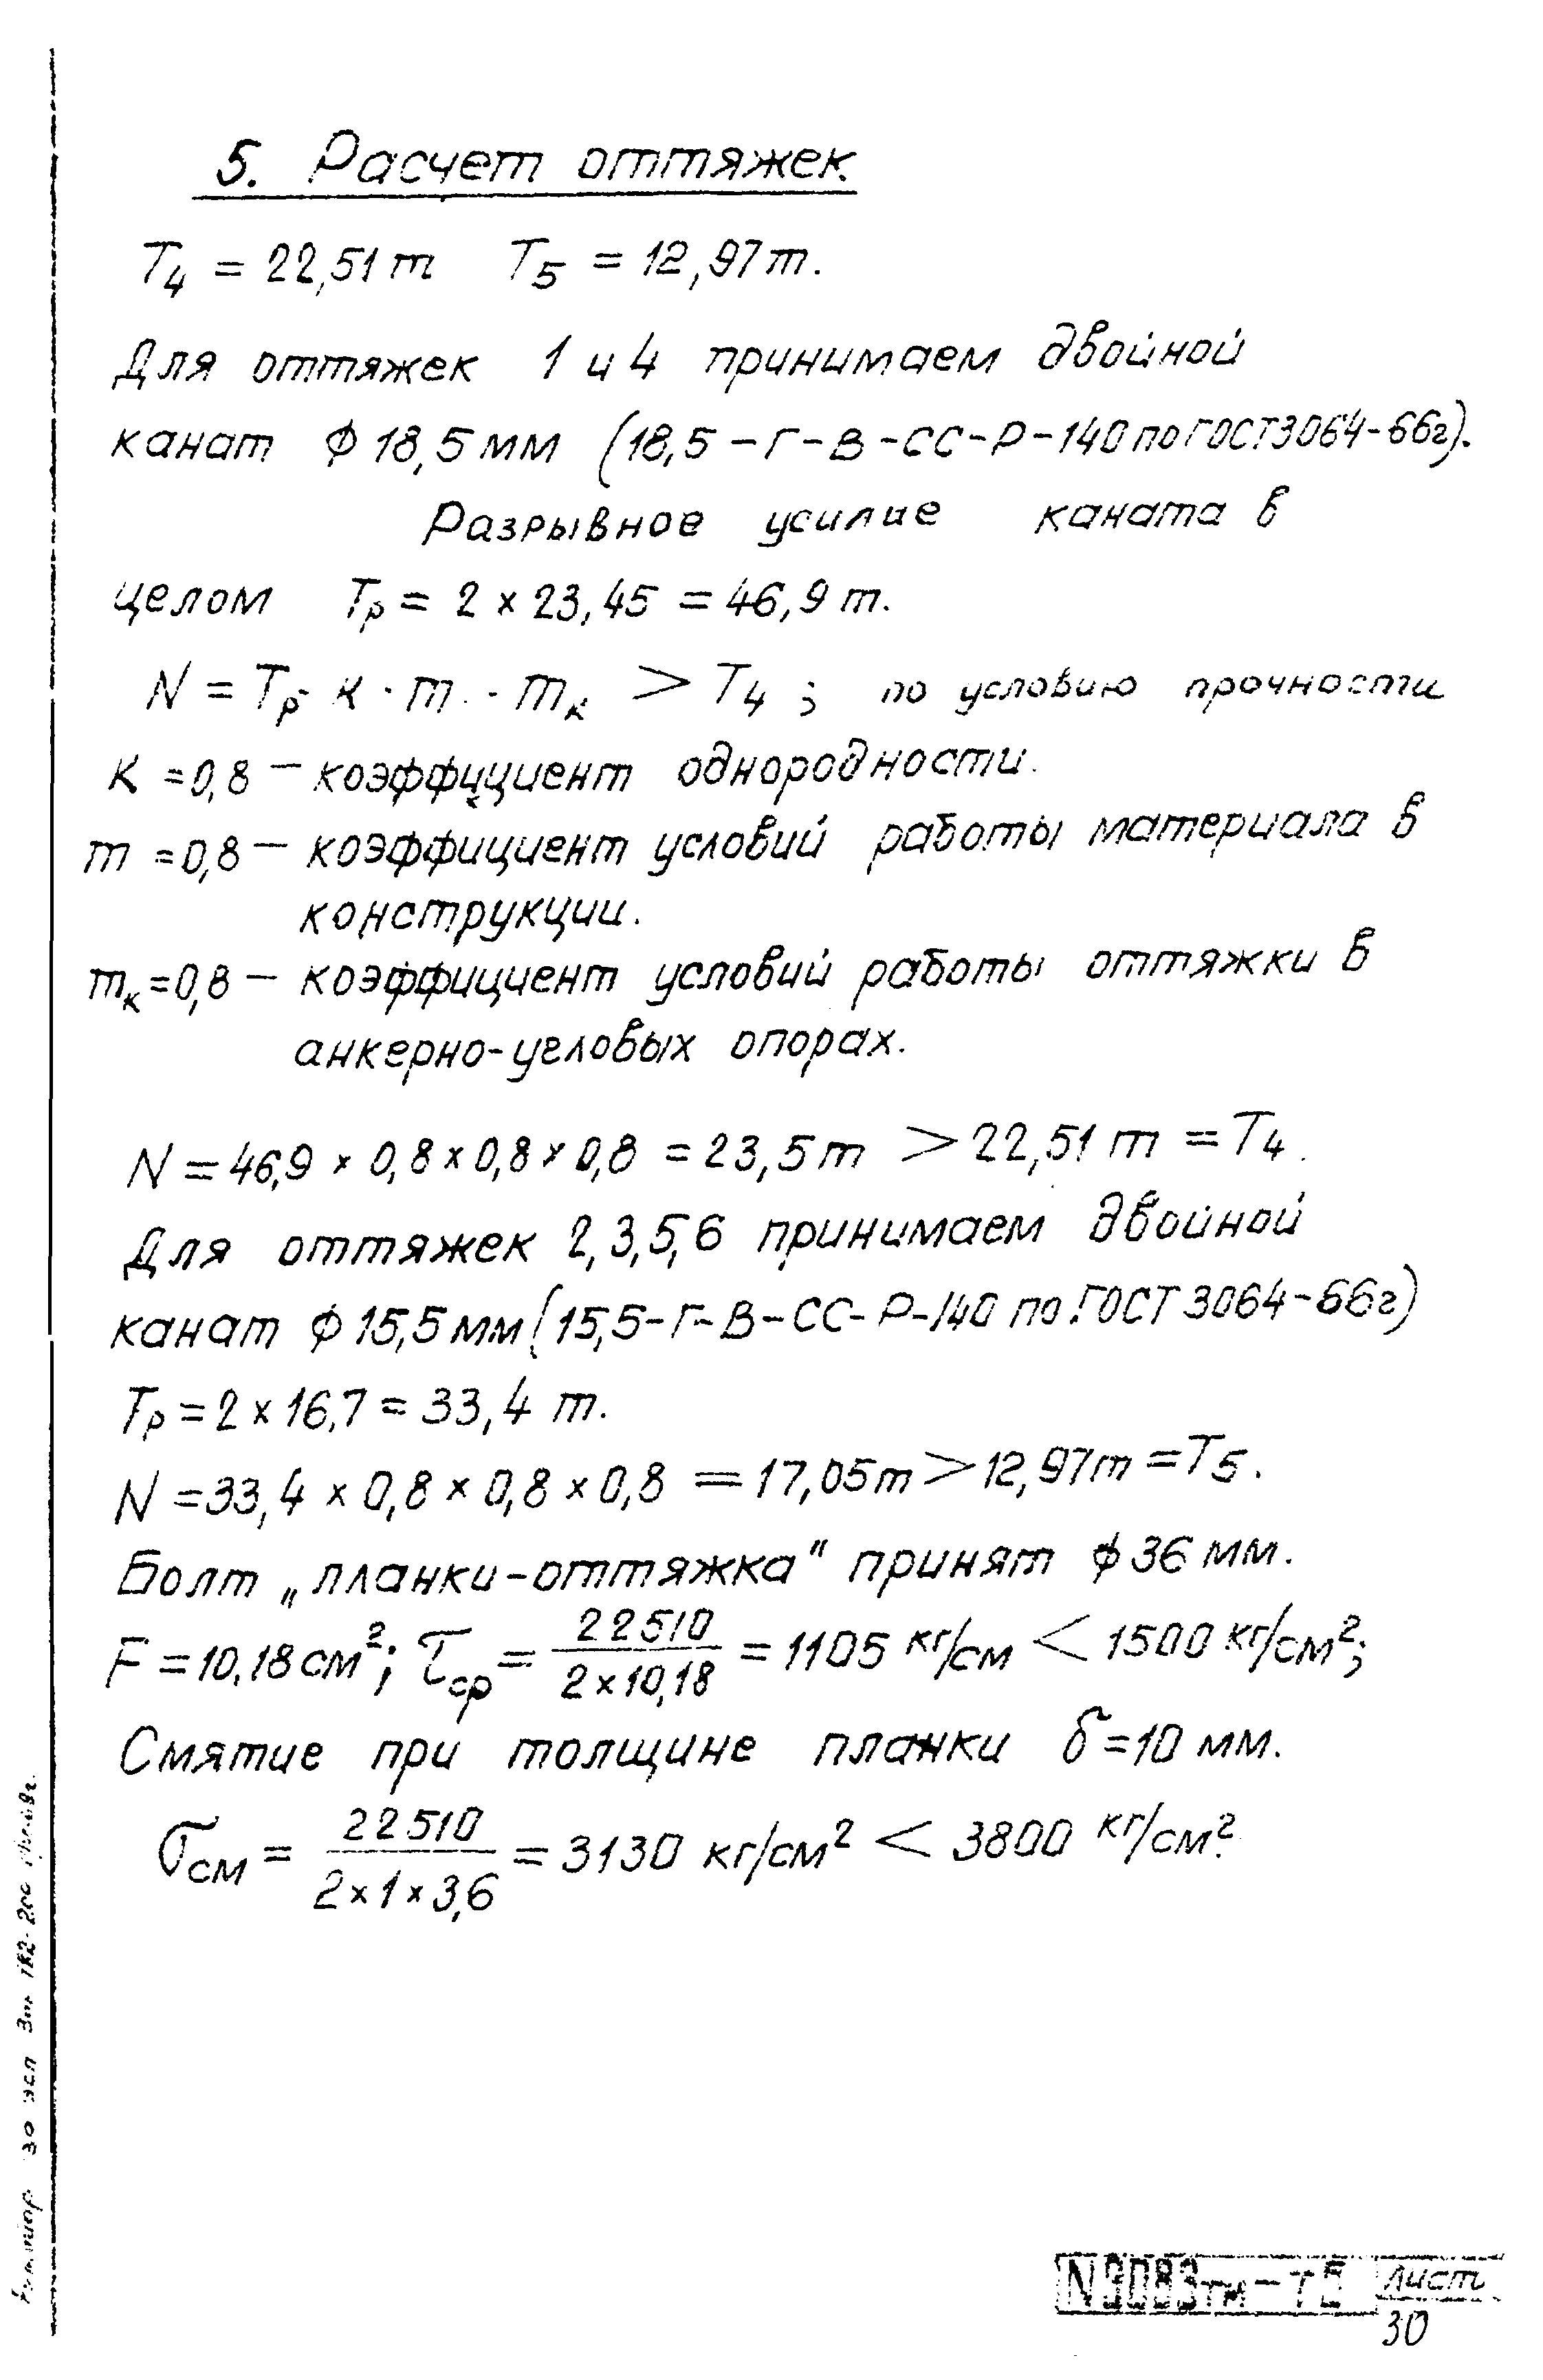 5. Расчет оттяжек
T4 = 22,51 т T5 = 12,97 т.
Для оттяжек 1 и 4 принимаем двойной
канат ф 18,5 мм (18,5-Г-В-СС-Р-140 по ГОСТ 3064-66г).
Разрывное усилие каната в
целом Tр = 2 х 23,45 = 46,9 т.
N = Tр · К · m · mк > T4 ; по условию прочности
К = 0,8 – коэффициент однородности.
m = 0,8 – коэффициент условий работы материала в
конструкции.
mк = 0,8 – коэффициент условий работы оттяжки в
анкерно-угловых опорах.
N = 46,9 х 0,8 х 0,8 х 0,8 = 23,5 т > 22,51 т = T4.
Для оттяжек 2,3,5,6 принимаем двойной
канат ф 15,5 мм (15,5-Г-В-СС-Р-140 по ГОСТ 3064-66г)
Tр = 2 х 16,7 = 33,4 т.
N = 33,4 х 0,8 х 0,8 х 0,8 = 17,05 т > 12,97 т = T5.
Болт „планки-оттяжка" принят ф 36 мм.
F = 10,18 см²; τср = 22510 / 2 х 10,18 = 1105 кг/см < 1500 кг/см²;
Смятие при толщине планки δ = 10 мм.
σсм = 22510 / 2 х 1 х 3,6 = 3130 кг/см² < 3800 кг/см².
N3083тм-Т5 Лист
30